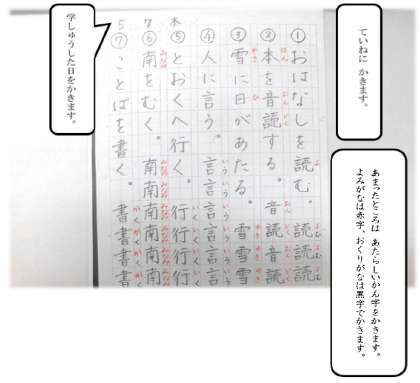 ていねいに かきます。
あまったところは あたらしいかん字をかきます。
よみがなは赤字、おくりがなは黒字でかきます。
①おはなしを読む。読読読
②本を音読する。音読音読
③雪に日があたる。雪雪雪
④人に言う。言言言言言
⑤とおくへ行く。行行行行
⑥南をむく。南南南南南
⑦ことばを書く。書書書書
5 7
学しゅうした日をかきます。